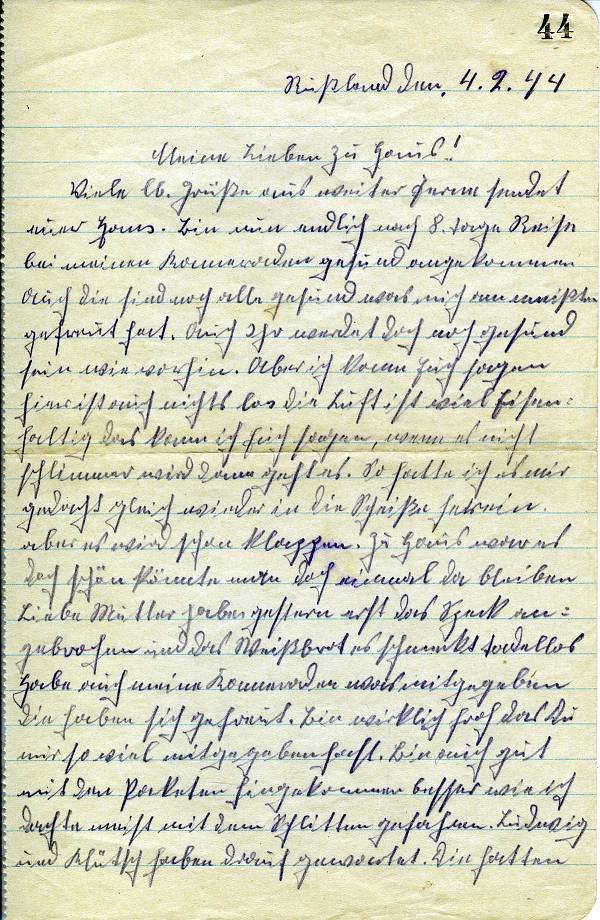 44
Rußland den, 4.2.44
Meine Lieben zu Haus!
Viele lb. Grüße aus weiter Ferne sendet
euer Hans. Bin nun endlich nach 8. tage Reise
bei meinen Kameraden gesund angekommen
Auch die sind noch alle gesund was mich am meißten
gefreut hat. Auch Ihr werdet doch noch gesund
sein wie vorhin. Aber ich kann Euch sagen
hier ist auch nichts los die Luft ist viel Eisen=
haltig das kann ich Euch sagen, wenn es nicht
schlimmer wird dann geht es. So hatte ich es mir
gedacht gleich wieder in die Scheiße herein.
aber es wird schon klappen. Zu Haus war es
doch schön könnte man doch einmal da bleiben
Liebe Mutter habe gestern erst das Speck an=
gebrochen und das Weißbrot es schmekt tadellos
Habe auch meine Kameraden was mitgegeben
die haben sich gefreut. Bin wirklich froh das Du
mir so viel mitgegeben hast. Bin auch gut
mit den Paketen hingekommen besser wie ich
dachte meist mit dem Schlitten gefahren. Ludwig
und haben drauf gewartet. Die hatten